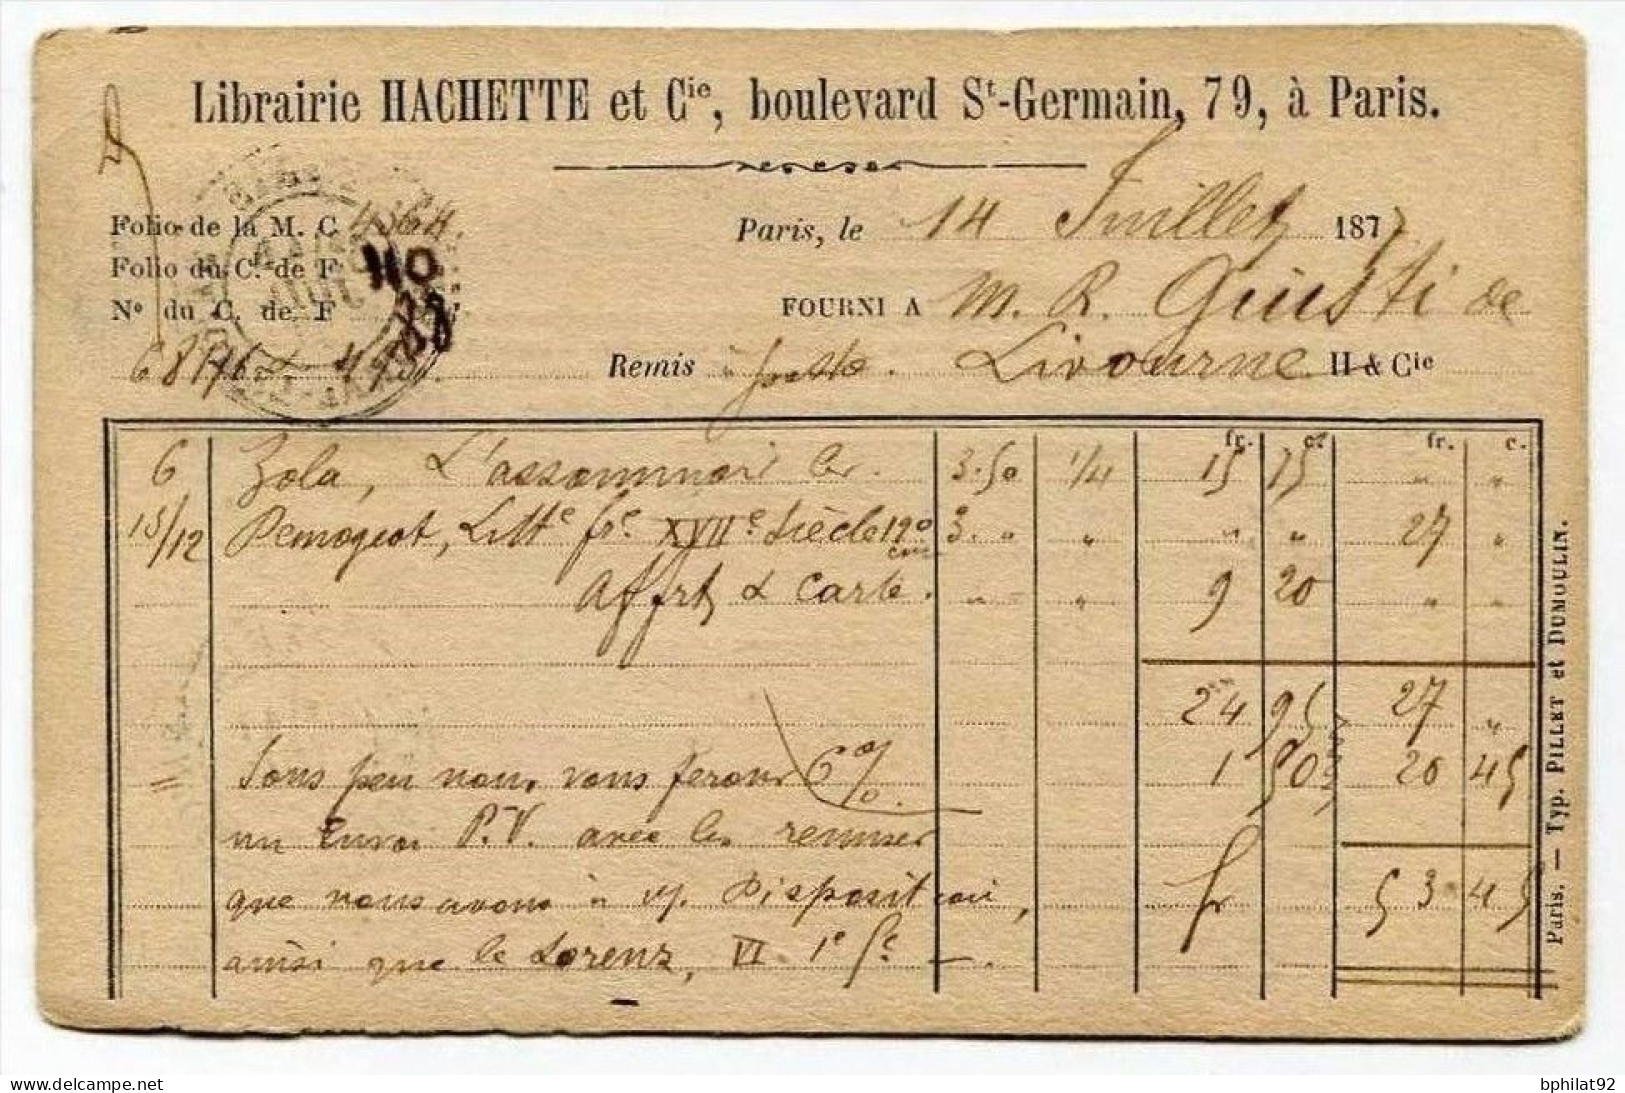 Librairie HACHETTE et Cie, boulevard St-Germain, 79, à Paris.
Folio de la M. C. 4364. Paris, le 14 Juillet 1877
Folio du C. de F 110
No du C. de F FOURNI A M. R. Giusti de
Remis à poste. Livourne H & Cie
fr. c. fr. c.
6 Zola, L'assommoir br. 3.50 1/4 15 75 " "
13/12 Demogeot, Litte fse XVIIe Siècle 190 3. " " " " 27 "
Affrt & Carte. " " 9 20 " "
24 95 27 "
= Sous peu nous vous ferons 6 %. 1 50 20 45
un Envoi P.V. avec les remises
que nous avons à v/. Disposition, fr 53 45
ainsi que le Lorenz, VI 1e fc —.
Paris. — Typ. PILLET et DUMOULIN.
bphilat92